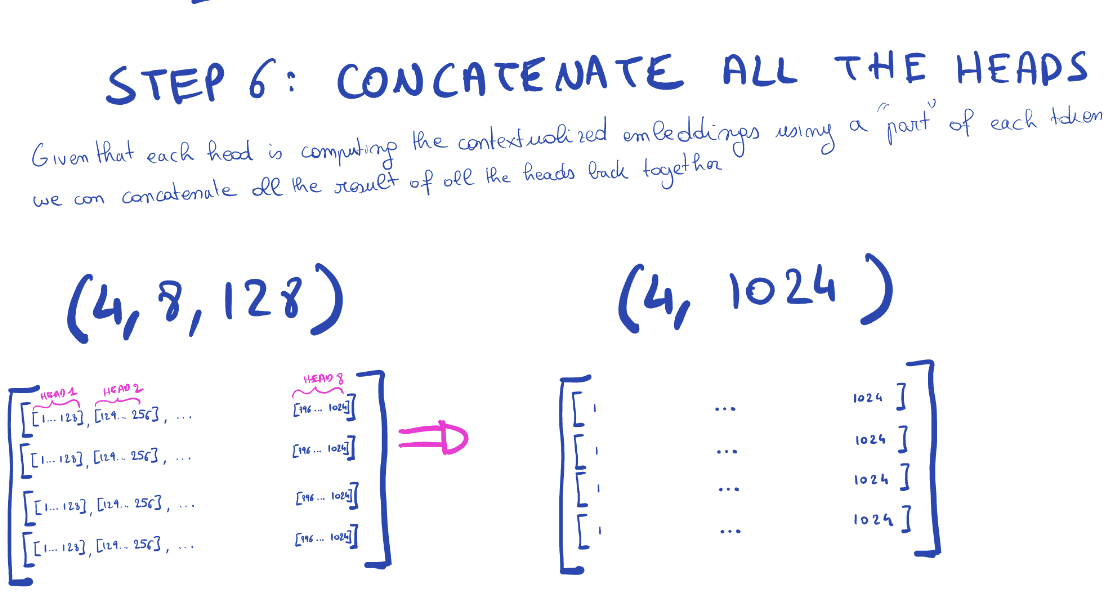 STEP 6: CONCATENATE ALL THE HEADS
Given that each head is computing the contextualized embeddings using a "part" of each token
we can concatenate all the result of all the heads back together
(4, 8, 128)
(4, 1024)
HEAD 1 HEAD 2 HEAD 8
[[1... 128], [129... 256], ... [896... 1024]]
[[1... 128], [129... 256], ... [896... 1024]]
[[1... 128], [129... 256], ... [896... 1024]]
[[1... 128], [129... 256], ... [896... 1024]]
[1 ... 1024]
[1 ... 1024]
[1 ... 1024]
[1 ... 1024]